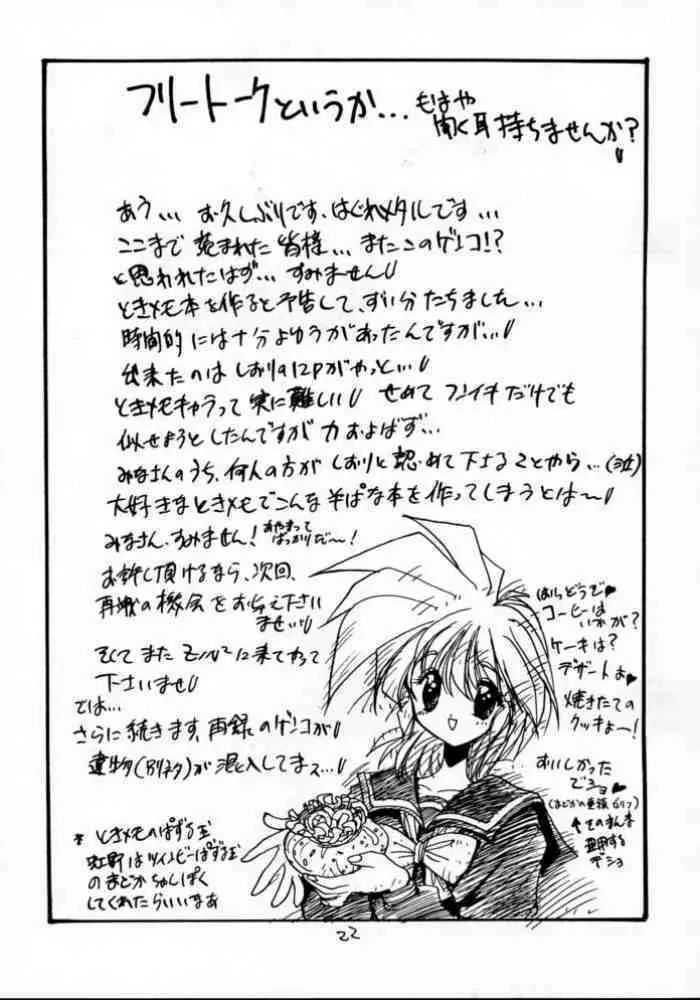 フリートークというか...もはや
聞く耳持ちませんか?
あう... お久しぶりです、はぐれメタルです...
ここまで 読まれた 皆様... またこのゲンコ!?
と思われたはず... すみません
ときメモ本を作ると予告して、ずい分たちました...
時間的には十分よゆうがあったんですが...
出来たのは しおりの12Pがやっと...
ときメモキャラって 実に難しい せめて フンイキ だけでも
似せようとしたんですが 力 およばず...
みなさんのうち、何人の方が しおりと 認めて下さることやら...(泣)
大好きなときメモでこんな そぱな本を作ってしまうとは〜
みなさん、すみません! あやまって
ばっかりだ〜!
お許し頂けるなら、次回、
再戦の機会を お与え下さい
ませ
そして また に来てやって
下さいませ
では...
さらに続きます、再録のゲンコが
遺物(Hリネタ)が 混入してまス...
* ときメモのぱずる玉
虹野はツインビーぱずる玉
のまどか ちゅしぱく
してくれたらいいなあ
はい どうぞ♥
コーヒーは
いかが?
ケーキは?
デザートよ♥
焼きたての
クッキよー!
おいしかった
でショ♥
(まどかの連鎖セリフ)
↑そのまんま
登用する
デショ
22